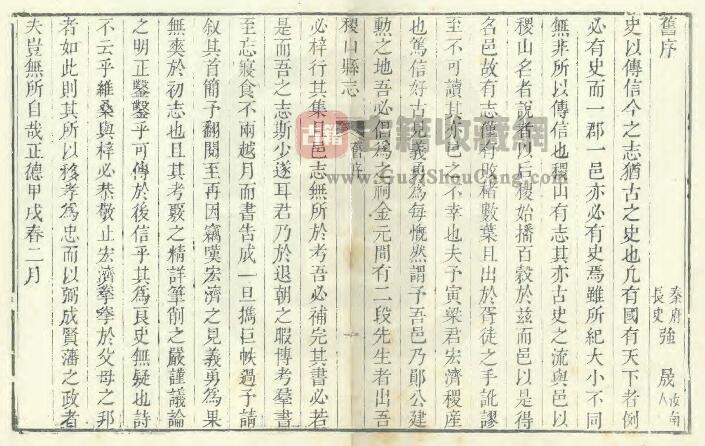 舊序
秦府
長史
強 晟
汝南
人
史以傳信今之志猶古之史也凡有國有天下者例
必有史而一郡一邑亦必有史焉雖所紀大小不同
無非所以傳信也稷山有志其亦古史之流與邑以
稷山名者說者以后稷始播百穀於茲而邑以是得
名邑故有志僅有故楮數葉且出於胥徒之手訛謬
至不可讀其亦邑之不幸也夫予寅梁君宏濟稷產
也篤信好古見義勇為每慨然謂予吾邑乃鄖公建
勲之地吾必倡為之祠金元間有二段先生者出吾
稷山縣志
舊序
十
必梓行其集且邑志無所於考吾必補完其書必若
是而吾之志斯少遂耳君乃於退朝之暇博考羣書
至忘寢食不兩越月而書告成一旦攜巨帙過予請
叙其首簡予翻閱至再因竊嘆宏濟之見義勇為果
無爽於初志也且其考覈之精詳筆削之嚴謹議論
之明正鑿鑿乎可傳於後信乎其為良史無疑也詩
不云乎維桑與梓必恭敬止宏濟拳拳於父母之邦
者如此則其所以移孝為忠而以弼成賢藩之政者
夫豈無所自哉正德甲戌春二月
古籍收藏網
www.GujiShouCang.com